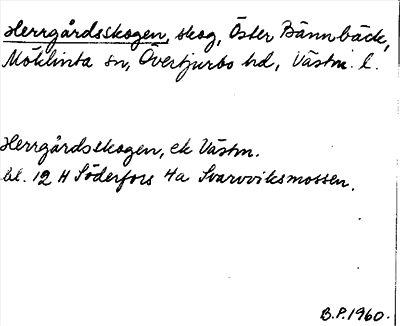 Herrgårdsskogen, skog, Öster Bännbäck,
Möklinta sn, Övertjurbo hd, Västm. l.
Herrgårdsskogen, ek Västm.
bl. 12 H Söderfors 4a Svarvviksmossen.
B.P. 1960.